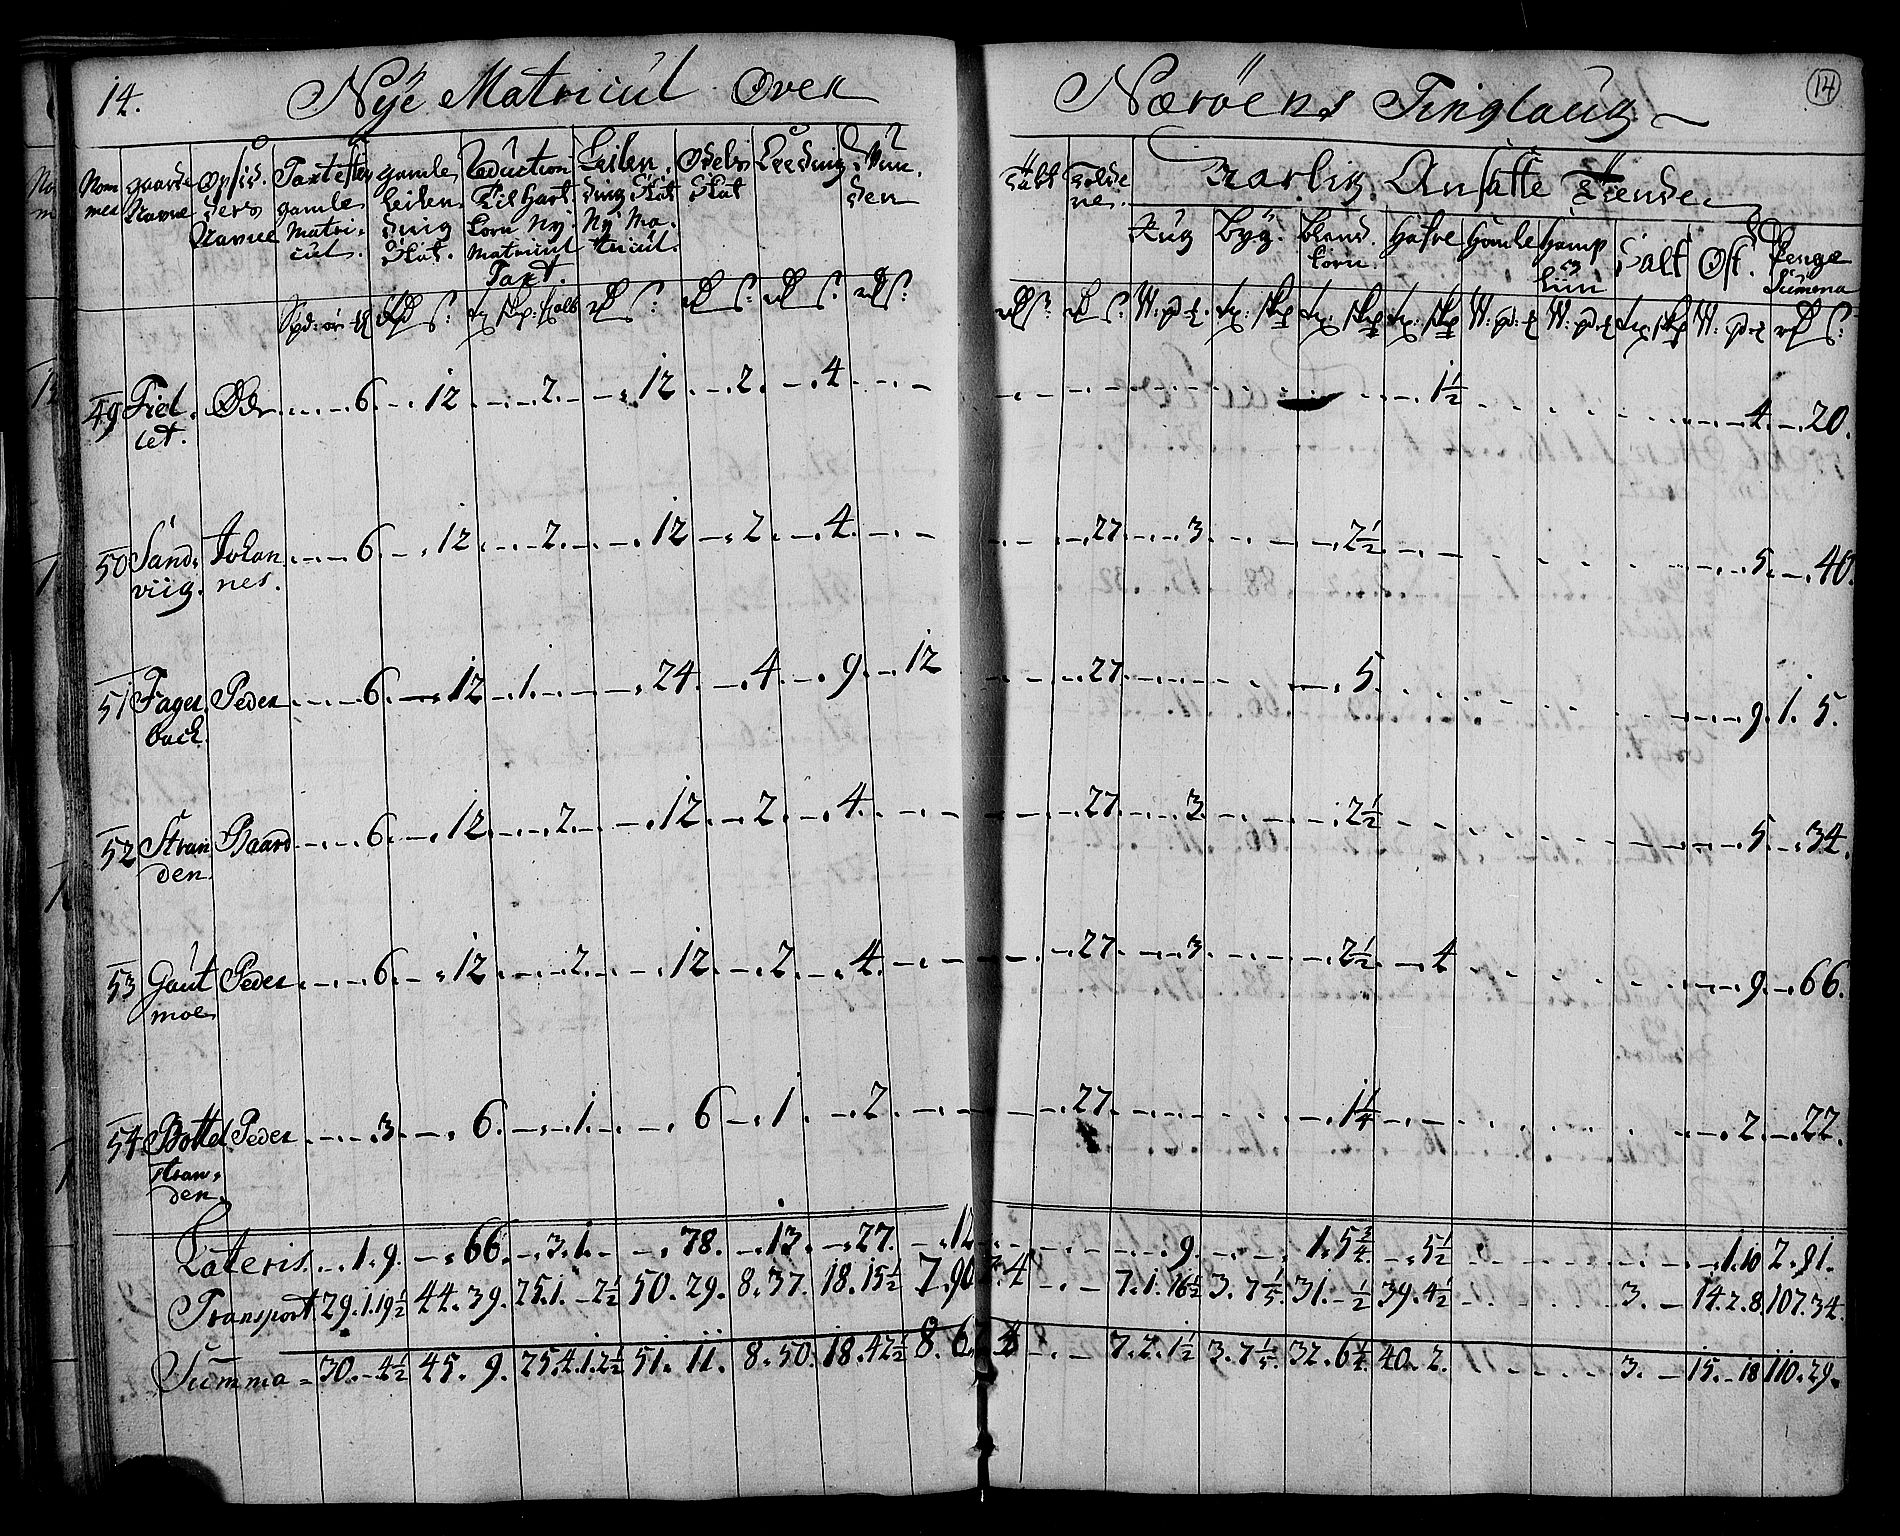 14. Nÿe Matricul Over Nærøens Tinglaug 14
Nom mer
gaarde Navne
Opsid ders Navne
Taxt efter gamle Matri. cul.
gamle Leilen ding Skat.
Reduction Til Hart korn Nÿ Matricul Taxt.
Leilen. ding Skat Nÿ Ma. tricul.
Odels Skat
Leeding
Aarlig Ansatte Tiende
Rug Bÿg. bland. korn. Hafre Homle Hamp og Liin Salt Ost. Penge Summa
49 Fiel. Odr. 6. 12. 2. 12. 2. 4. 1½ 4. 20.
let.
50 Sand. Johan 6. 12. 2. 12. 2. 4. 27. 3. 2½ 5. 40.
viig. nes.
51 Fager Peder 6. 12. 1. 24. 4. 9. 12 27. 5. 9. 1. 5.
back.
52 Stran Baard 6. 12. 2. 12. 2. 4. 27. 3. 2½ 5. 34.
den.
53 Gaut Peder 6. 12. 2. 12. 2. 4. 27. 3. 2½ 4 9. 66.
moe
54 Bottel Peder 3. 6. 1. 6. 1. 2. 27. 1¼ 2. 22.
stran.
den.
Lateris. 1. 9. 66. 3. 1. 78. 13. 27. 12 9. 1. 5¾ 5½ 1. 10 2. 91.
Transport 29. 1. 19½ 44. 39. 75. 1. 2½ 50. 29. 8. 37. 18. 15½ 7. 90 4 7. 1. 16½ 3. 7⅕ 31. ½ 39. 4½ 3. 14. 2. 8 107. 34
Summa 30. 4½ 45. 9. 75. 4. 1. 2½ 51. 11. 8. 50. 18. 42½ 8. 6. 7. 2. 1½ 3. 7⅕ 32. 6¼ 40. 2. 3. 15. 18 110. 29.